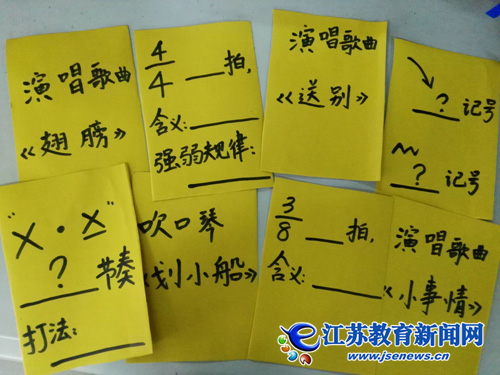 演唱歌曲
《翅膀》
4
4
拍,
含义:
强弱规律:
演唱歌曲
《送别》
? 记号
? 记号
"X · X"
?
节奏
打法:
吹口琴
《划小船》
3
8
拍,
含义:
演唱歌曲
《小事情》
e江苏教育新闻网
www.jsenews.cn